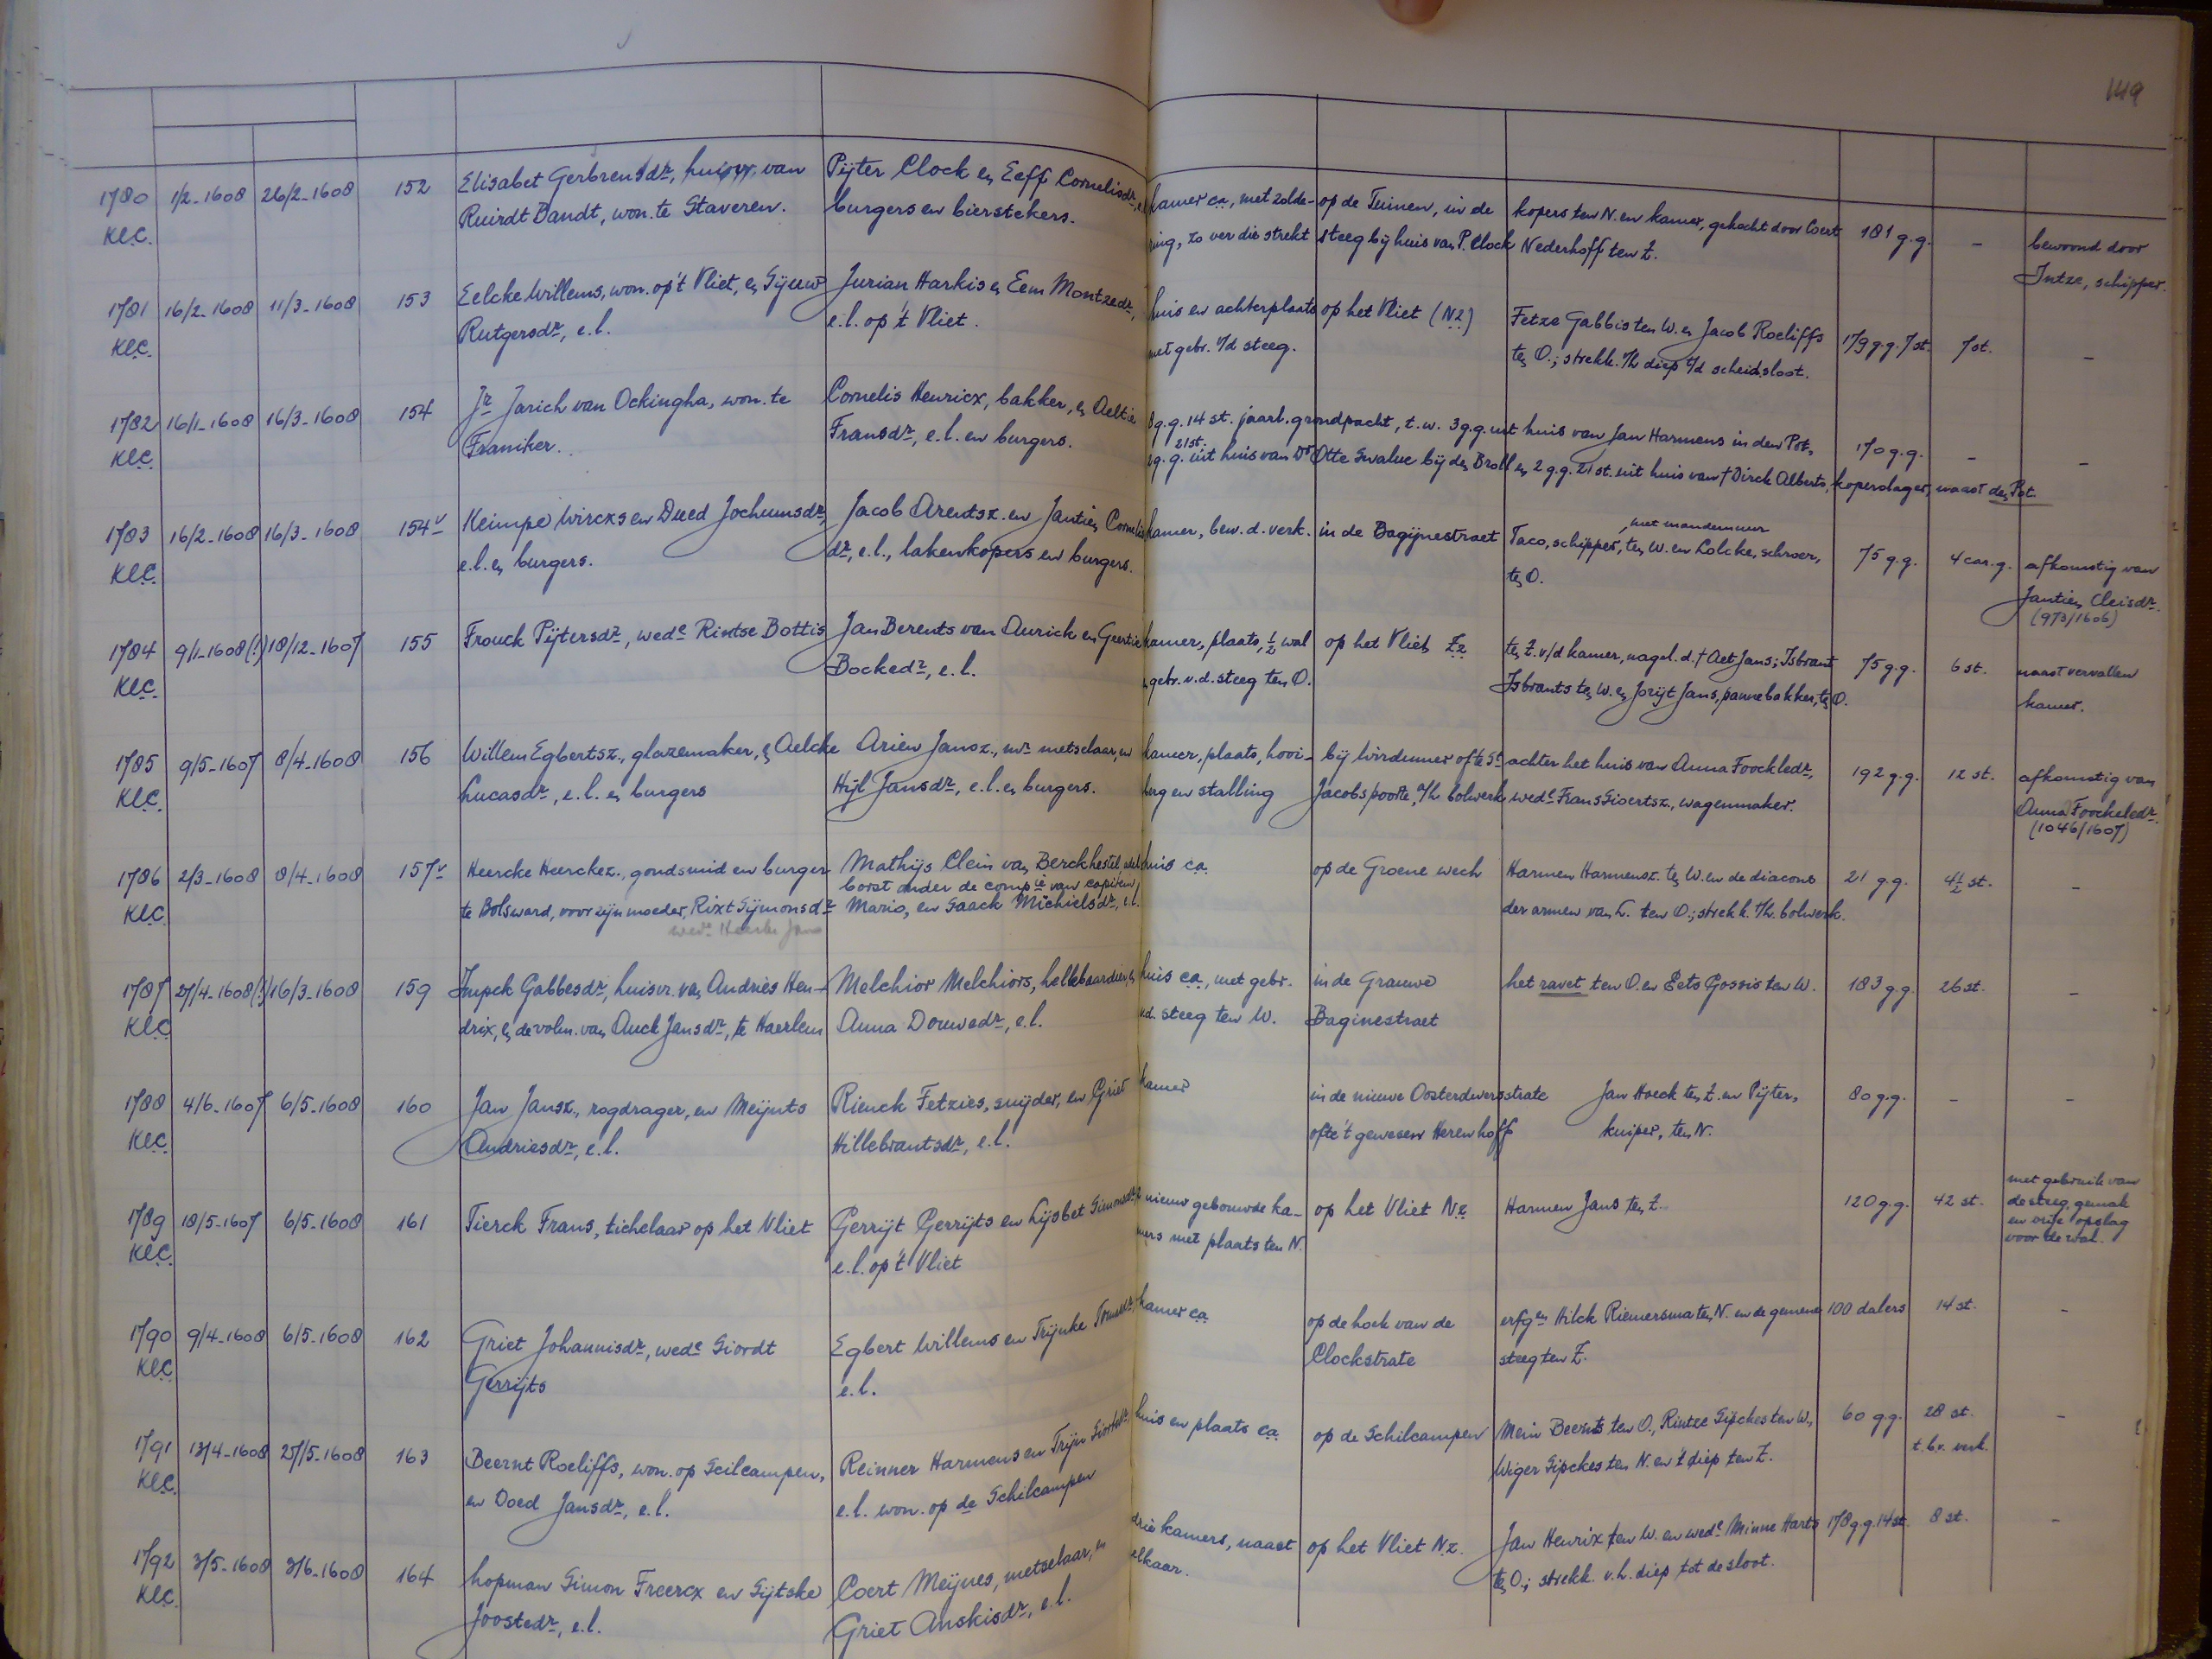 149
1780 1/2-1608 26/2-1608 152 Elisabet Gerbrensdr, huisvr. van Pijter Clock en Eeff Cornelisdr, kamer ca, met zolde- op de Tuinen, in de kopers ten N. en kamer, gekocht door Coert 181 g.g. - bewoond door
klc. Ruirdt Bandt, won. te Staveren. burgers en bierstekers. ring, zo ver die strekt steeg bij huis van P. Clock Nederhoff ten Z. Intze, schipper.
1781 16/2-1608 11/3-1608 153 Eelcke Willems, won. op 't Vliet, en Sijuw Jurian Harkis en Eem Montzedr, huis en achterplaats op het Vliet (NZ) Fetze Gabbis ten W. en Jacob Roeliffs 179 g.g. 7 st. 7 st. -
klc. Rutgersdr, e.l. e.l. op 't Vliet. met gebr. v/d steeg. ten O.; strekk. v/h diep t/d scheidsloot.
1782 16/1-1608 16/3-1608 154 Jr Jarich van Ockingha, won. te Cornelis Henricx, bakker, en Aeltie 8 g.g. 14 st. jaarl. grondpacht, t.w. 3 g.g. uit huis van Jan Harmens in den Pot, 170 g.g. - -
klc. Franiker. Fransdr, e.l. en burgers. g.g. 21 st. uit huis van Dr Otte Swalue bij den Broll en 2 g.g. 21 st. uit huis van † Dirck Alberts, koperslager, naast den Pot.
1783 16/2-1608 16/3-1608 154v Keimpe Wircxs en Dued Jochumsdr, Jacob Arentsz. en Jantien Cornelis kamer, bew. d. verk. in de Bagijnestraet Taco, schipper, ten W. en Lolcke, schroer, met mandemuur 75 g.g. 4 car. g. afkomstig van
klc. e.l. en burgers. dr, e.l., lakenkopers en burgers. ten O. Jantien Cleisdr.
(973/1606)
1784 9/1-1608 (!) 18/12-1607 155 Frouck Pijtersdr, wede Rintse Bottis Jan Berents van Aurick en Geertie kamer, plaats, ½ wal op het Vliet ZZ ten Z. v/d kamer, nagel. d. † Aet Jans; Isbrant 75 g.g. 6 st. naast vervallen
klc. Bockedr, e.l. gebr. v.d. steeg ten O. Isbrants ten W. en Jorijt Jans, pannebakker, ten O. kamer.
1785 9/5-1607 8/4-1608 156 Willem Egbertsz., glazemaker, en Aelcke Arien Jansz., mr metselaar, en kamer, plaats, hooi- bij Wirdumer ofte St achter het huis van Anna Foockledr, 192 g.g. 12 st. afkomstig van
klc. Lucasdr, e.l. en burgers Hijl Jansdr, e.l. en burgers. berg en stalling Jacobspoorte, a/h bolwerk wede Frans Sioertsz., wagenmaker. Anna Foockeledr.
(1046/1607)
1786 2/3-1608 8/4-1608 157v Heercke Heerckez., goudsmid en burger Mathijs Clein van Berckhestel, huis ca. op de Groene wech Harmen Harmensz. ten W. en de diacons 21 g.g. 4½ st. -
borst onder de compie van capitein
klc. te Bolsward, voor zijn moeder, Rixt Sijmonsdr Mario, en Saack Michielsdr, e.l. der armen van L. ten O.; strekk. t/h. bolwerk.
wede Heerke Jans
1787 27/4-1608 (!) 16/3-1608 159 Impck Gabbesdr, huisvr. van Andries Hen- Melchior Melchiors, hellebaardier, en huis ca, met gebr. in de Grauwe het ravet ten O. en Eets Gossis ten W. 183 g.g. 26 st. -
klc. drix, en de volm. van Auck Jansdr, te Haerlem Anna Douwedr, e.l. v.d. steeg ten W. Baginestraet
1788 4/6-1607 6/5-1608 160 Jan Jansz., rogdrager, en Meijnts Rienck Fetzies, snijder, en Griet kamer in de nieuwe Oosterdwersstrate Jan Hoeck ten Z. en Pijter, 80 g.g. - -
klc. Andriesdr, e.l. Hillebrantsdr, e.l. ofte 't gewesen Herenhoff kuiper, ten N.
1789 18/5-1607 6/5-1608 161 Tierck Frans, tichelaar op het Vliet Gerrijt Gerrijts en Lijsbet Simonsdr, nieuw gebouwde ka- op het Vliet NZ Harmen Jans ten Z. 120 g.g. 42 st. met gebruik van
de steeg, gemak
en vrije opslag
voor de wal.
klc. e.l. op 't Vliet mers met plaats ten N.
1790 9/4-1608 6/5-1608 162 Griet Johannisdr, wede Siordt Egbert Willems en Trijnke kamer ca. op de hoek van de erfgen Hilck Riemersma ten N. en de gemene 100 dalers 14 st. -
klc. Gerrijts e.l. Clockstrate steeg ten Z.
1791 13/4-1608 27/5-1608 163 Beernt Roeliffs, won. op Scilcampen, Reinner Harmens en Trijn huis en plaats ca. op de Schilcampen Mein Beernts ten O., Rintze Sipckes ten W., 60 g.g. 28 st. -
klc. en Doed Jansdr, e.l. e.l. won. op de Schilcampen Wiger Sipckes ten N. en 't diep ten Z. t.b.v. verk.
1792 3/5-1608 3/6-1608 164 hopman Simon Freercx en Sijtske Coert Meijnes, metselaar, en drie kamers, naast op het Vliet NZ. Jan Henrix ten W. en wede Minne Harts 178 g.g. 14 st. 8 st. -
klc. Joostedr, e.l. Griet Anskisdr, e.l. elkaar. ten O.; strekk. v.h. diep tot de sloot.